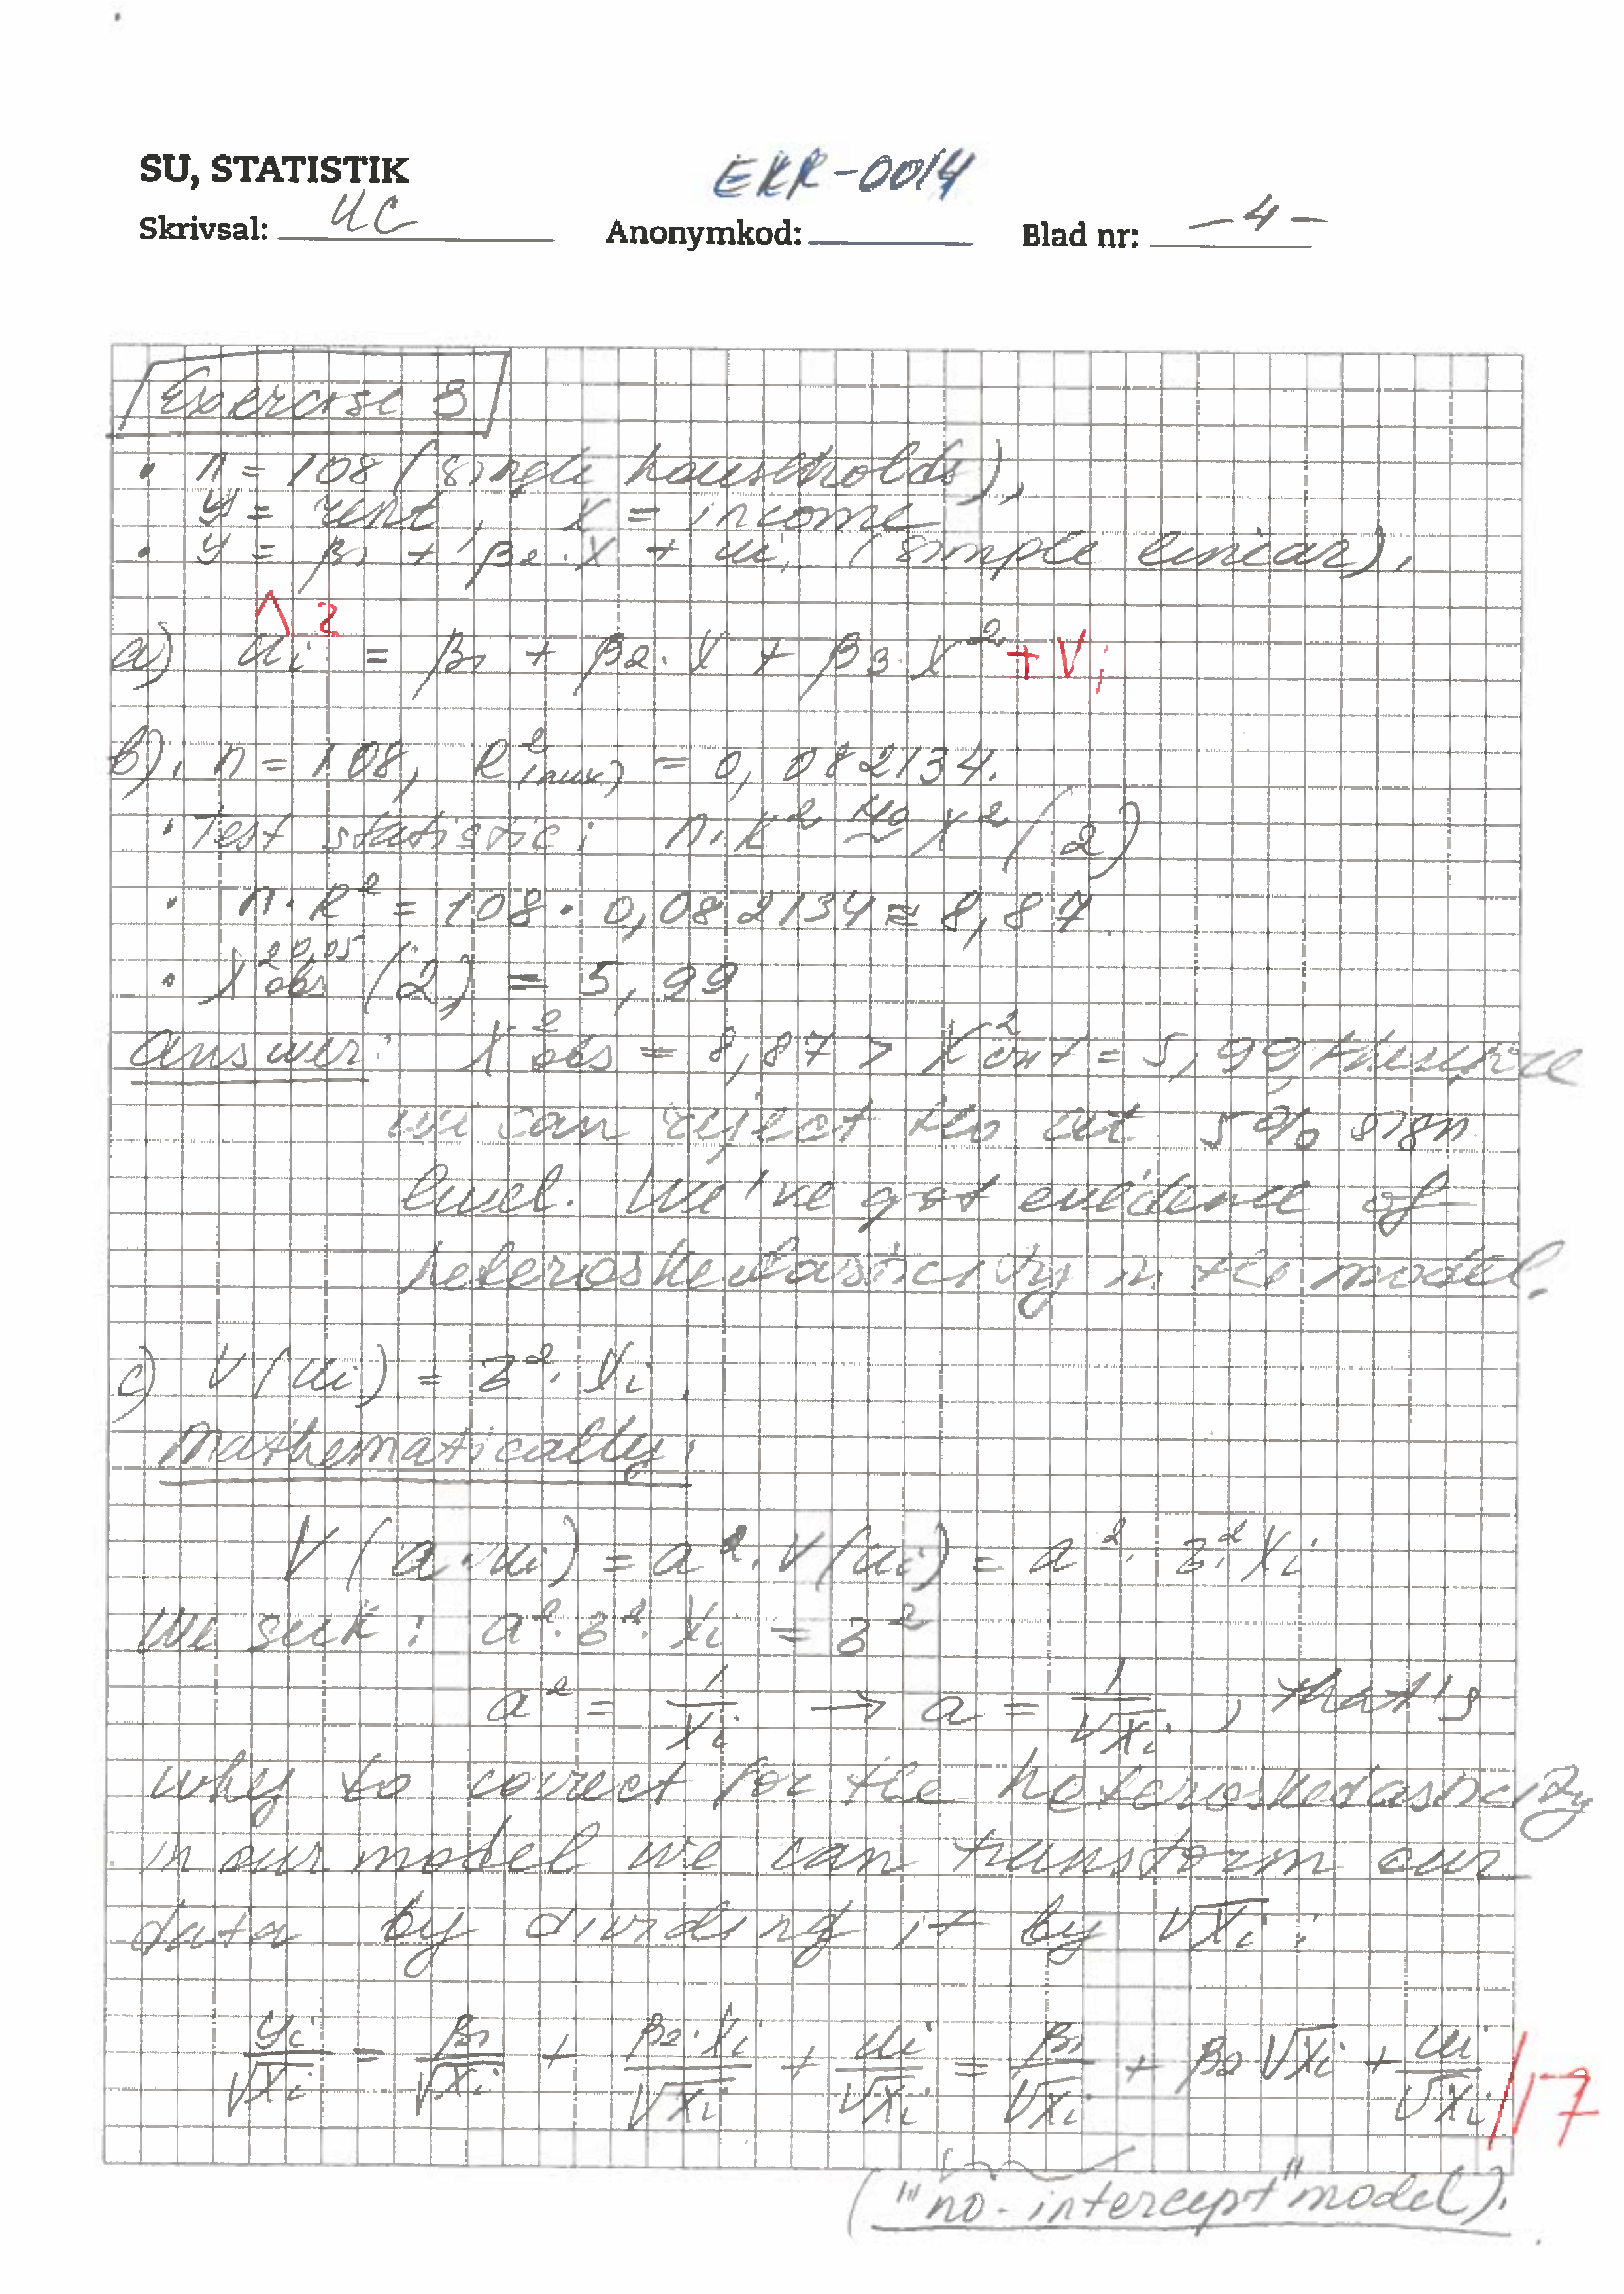 SU, STATISTIK
EKR-0014
Skrivsal: UC Anonymkod: Blad nr: -4-
Exercise 3
• n = 108 (single households),
y = rent, x = income
• y = β1 + β2·X + ui, (simple linear).
a) ûi² = β1 + β2·X + β3·X² + Vi
b). n = 108, R² = 0,082134.
• Test statistic: n·R² H0~ χ²(2)
• n·R² = 108·0,082134 ≈ 8,87
• χ²0,05 obs (2) = 5,99
answer: χ²obs = 8,87 > χ²crit = 5,99, therefore
we can reject H0 at 5% sign
level. We've got evidence of
heteroskedasticity in the model.
c) V(ui) = 3²·Xi.
Mathematically:
V(a·ui) = a²·V(ui) = a²·3²·Xi
We seek: a²·3²·Xi = 3²
a² = 1/Xi → a = 1/√Xi, that's
why to correct for the heteroskedasticity
in our model we can transform our
data by dividing it by √Xi:
yi/√Xi = β1/√Xi + β2·Xi/√Xi + ui/√Xi = β1/√Xi + β2√Xi + ui/√Xi /17
("no-intercept" model).